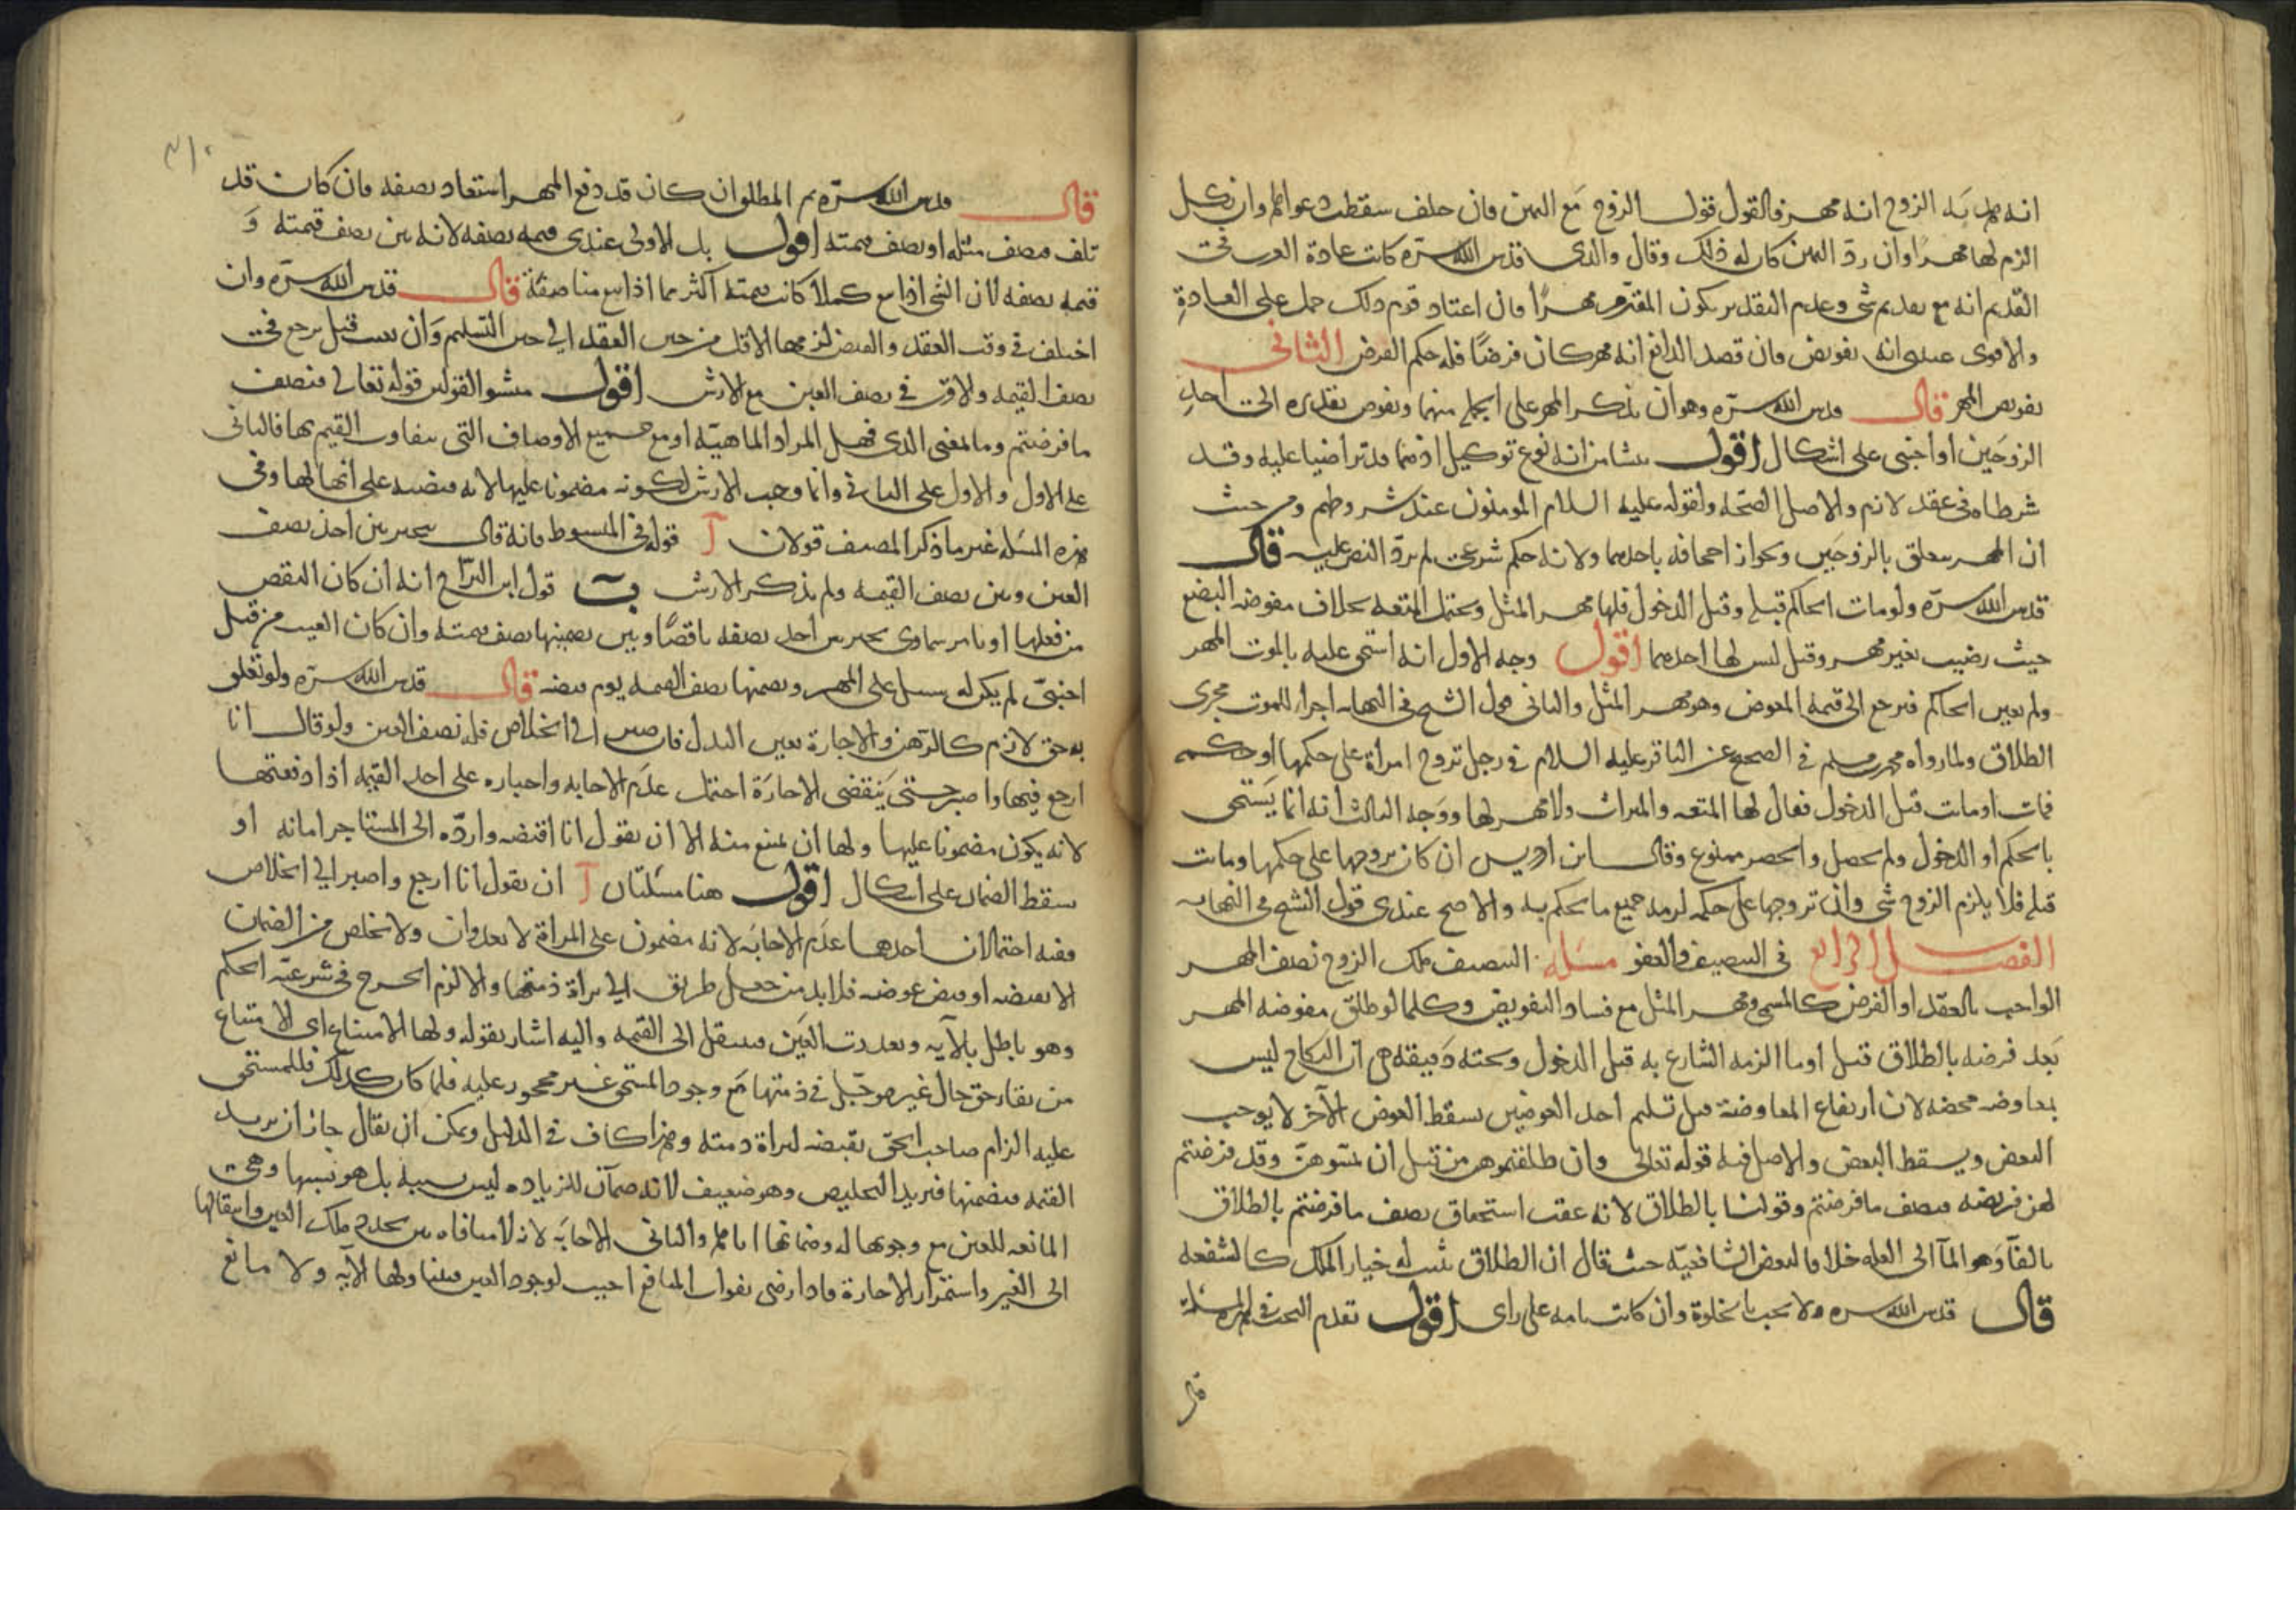 انه هدية الزوج انه مهر فالقول قول الزوج مع اليمن فان حلف سقطت دعواهم وان نكل
الزم لها مهرا وان رد اليمن كان له ذلك وقال والدى قدس الله سره كانت عادة العرب في
القديم انه مع تقديم شى وعدم التقدير يكون المقدم مهرا فان اعتاد قوم ذلك حمل على العادة
والاقوى عندى انه تفويض فان قصد الدافع انه مهر كان فرضا فله حكم الفرض الثانى
تفويض المهر قال قدس الله سره وهو ان يذكر المهر على الجملة مبهما ويفوض تقديره الى احد
الزوجين او اجنبى على اشكال اقول منشا من انه نوع توكيل اذ هما قد تراضيا عليه وقد
شرطاه فى عقد لازم والاصل الصحة ولقوله عليه السلام المومنون عند شروطهم ومن حيث
ان المهر متعلق بالزوجين وبجواز اجحافه باحدهما ولانه حكم شرعى لم يرد النص عليه قال
قدس الله سره ولو مات الحاكم قبله وقبل الدخول فلها مهر المثل ويحتمل المتعه بخلاف مفوضه البضع
حيث رضيت بغير مهر وقيل ليس لها احدهما اقول وجه الاول انه استحق عليه بالموت المهر
ولم يعين الحاكم فيرجع الى قيمة المعوض وهو مهر المثل والثانى قول الشيخ فى النهايه اجراء للموت مجرى
الطلاق ولما رواه محمد بن مسلم فى الصحيح عن الباقر عليه السلام فى رجل تزوج امراة على حكمها او حكمه
فمات او ماتت قبل الدخول فقال لها المتعه والميراث ولا مهر لها ووجه الثالث انه انما يستحق
بالحكم او الدخول ولم يحصل والحصر ممنوع وقال ابن ادريس ان كان تزوجها على حكمها وماتت
قبله فلا يلزم الزوج شى وان تزوجها على حكمه لزمه جميع ما يحكم به والاصح عندى قول الشيخ فى النهايه
الفصل الرابع فى التنصيف والعفو مسئله التنصيف ملك الزوج نصف المهر
الواجب بالعقد او الفرض كالمسمى ومهر المثل مع فساد التفويض وكلما لو طلق مفوضه المهر
بعد فرضه بالطلاق قبل او ما الزمه الشارع به قبل الدخول وتحته دقيقه هى ان النكاح ليس
بمعاوضه محضه لان ارتفاع المعاوضة قبل تسليم احد العوضين يسقط العوض الآخر لا يوجب
البعض ويسقط البعض والاصل فيه قوله تعالى وان طلقتموهن من قبل ان تمسوهن وقد فرضتم
لهن فريضه فنصف ما فرضتم وقولنا بالطلاق لانه عقب استحقاق نصف ما فرضتم بالطلاق
بالفاء وهو ايماء الى العله خلافا لبعض الشافعيه حيث قال ان الطلاق يثبت له خيار الملك كالشفعه
قال قدس الله سره ولا يجب بالخلوة وان كانت تامه على راى اقول تقدم البحث فى هذه المسئلة
قال
٣١٠
قال قدس الله سره ثم المطلق ان كان قد دفع المهر استعاد نصفه فان كان قد
تلف فنصف مثله او نصف قيمته اقول بل الاولى عندى قيمه نصفه لانه بين نصف قيمته و
قيمه نصفه لان الشى اذا بيع كملا كانت قيمته اكثر مما اذا بيع مناصفة قال قدس الله سره وان
اختلف فى وقت العقد والقبض لزمها الاقل من حين العقد الى حين التسليم وان تعيب قيل يرجع فى
نصف القيمه والاقرب فى نصف العين مع الارش اقول منشو القولين قوله تعالى فنصف
ما فرضتم وما المعنى الذى فهل المراد الماهيه او مع جميع الاوصاف التى يتفاوت القيم بها فالثانى
على الاول والاول على الثانى وانما وجب الارش لكونه مضمونا عليها لانه قبضته على انها لها وفى
هذه المسئله غير ما ذكر المصنف قولان آ قوله فى المبسوط فانه قال يتخير بين اخذ نصف
العين وبين نصف القيمه ولم يذكر الارش ب قول ابن البراج انه ان كان النقص
من فعلها او بامر سماوى تخير بين اخذ نصفه ناقصا وبين تضمينها نصف قيمته وان كان العيب من قبل
اجنبى لم يكن له سبيل على المهر وتضمنها نصف القيمه يوم قبضه قال قدس الله سره ولو تعلق
به حق لازم كالرهن والاجارة تعين البدل فان صبر الى الخلاص فله نصف العين ولو قال انا
ارجع فيها واصبر حتى ينقضى الاجارة احتمل عدم الاجابه واجباره على اخذ القيمه اذا دفعتها
لانه يكون مضمونا عليها ولها ان تمتنع منه الا ان يقول انا اقبضه وارده الى المستاجر امانه او
يسقط الضمان على اشكال اقول هنا مسئلتان آ ان يقول انا ارجع واصبر الى الخلاص
ففيه احتمالان احدهما عدم الاجابه لانه مضمون على المراة لا بعدوان ولا تخلص من الضمان
الا بقبضه او قبض عوضه فلا بد من جعل طريق الى براة ذمتها والا لزم الحرج فى شرعيه الحكم
وهو باطل بالآيه وتعذرت العين فينتقل الى القيمه واليه اشار بقوله ولها الامتناع اى لا امتناع
من بقاء حق حال غير موجل فى ذمتها مع وجود المستحق غير محجور عليه فلما كان كذلك فللمستحق
عليه الزام صاحب الحق بقبضه لبراة ذمته وهذا كاف فى الدليل ويمكن ان يقال جاز ان يزيد
القيمه فيضمنها فيريد التخليص وهو ضعيف لانه ضمان للزياده ليس بسببه بل هو بسببها وهى
المانعه للعين مع وجوبها له وضمانها اياها والثانى الاجابه لانه لا منافاه بين تجدد ملك العين وانتقالها
الى الغير واستمرار الاجارة فاذا رضى بفوات المنافع اجيب لوجود العين فيتناولها الآيه ولا مانع